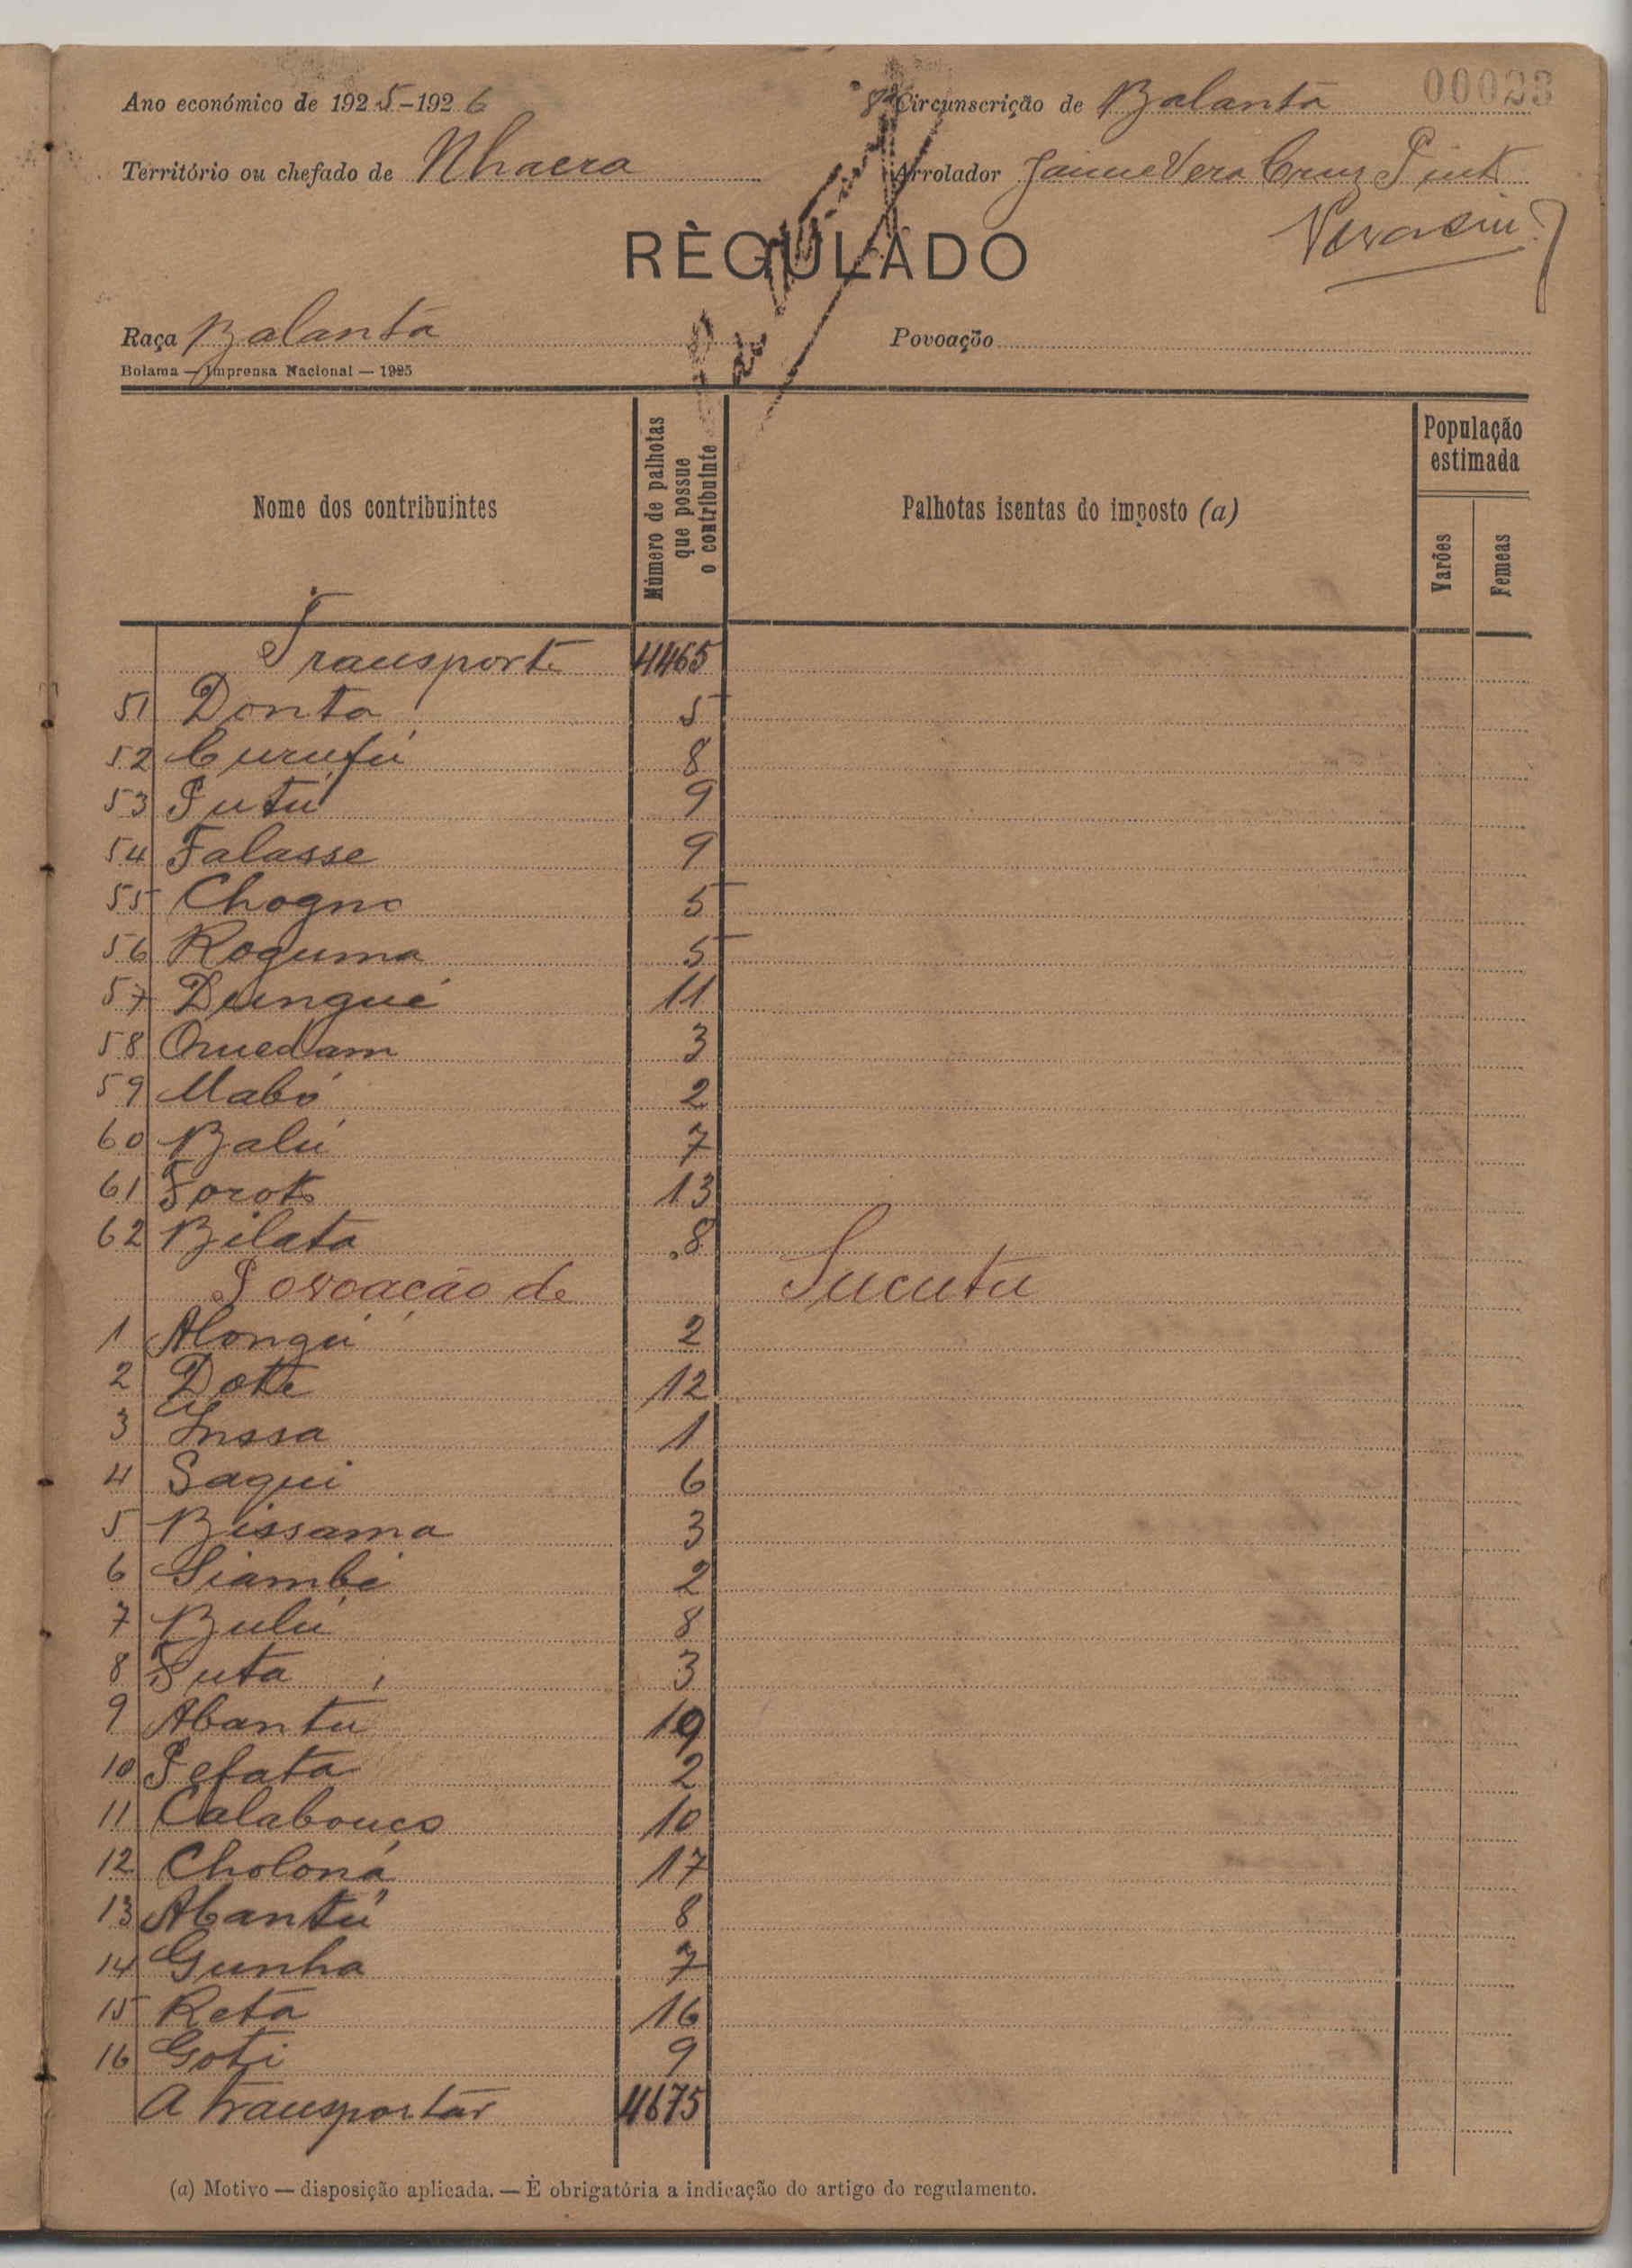 00023
Ano económico de 1925-1926
8ª Circunscrição de Balanta
Território ou chefado de Nhacra
Arrolador Jaime Vera Cruz Pinto
RÈGULADO
Raça Balanta
Povoação
Bolama — Imprensa Nacional — 1925
Nome dos contribuintes
Número de palhotas que possue o contribuinte
Palhotas isentas do imposto (a)
População estimada
Varões
Femeas
Transporte 4465
51 Donta 5
52 Curufú 8
53 Putú 9
54 Falasse 9
55 Chogno 5
56 Roguma 5
57 Dungué 11
58 Quedam 3
59 Mabó 2
60 Balú 7
61 Foroto 13
62 Bilata 8
Povoação de Sucutu
1 Alongú 2
2 Dote 12
3 Inssa 1
4 Sagui 6
5 Bissama 3
6 Siambé 2
7 Bulú 8
8 Futa 3
9 Abantu 19
10 Pefata 2
11 Calabouço 10
12 Choloná 17
13 Abantú 8
14 Gunha 7
15 Reta 16
16 Goti 9
A transportar 4675
(a) Motivo — disposição aplicada. — È obrigatória a indicação do artigo do regulamento.